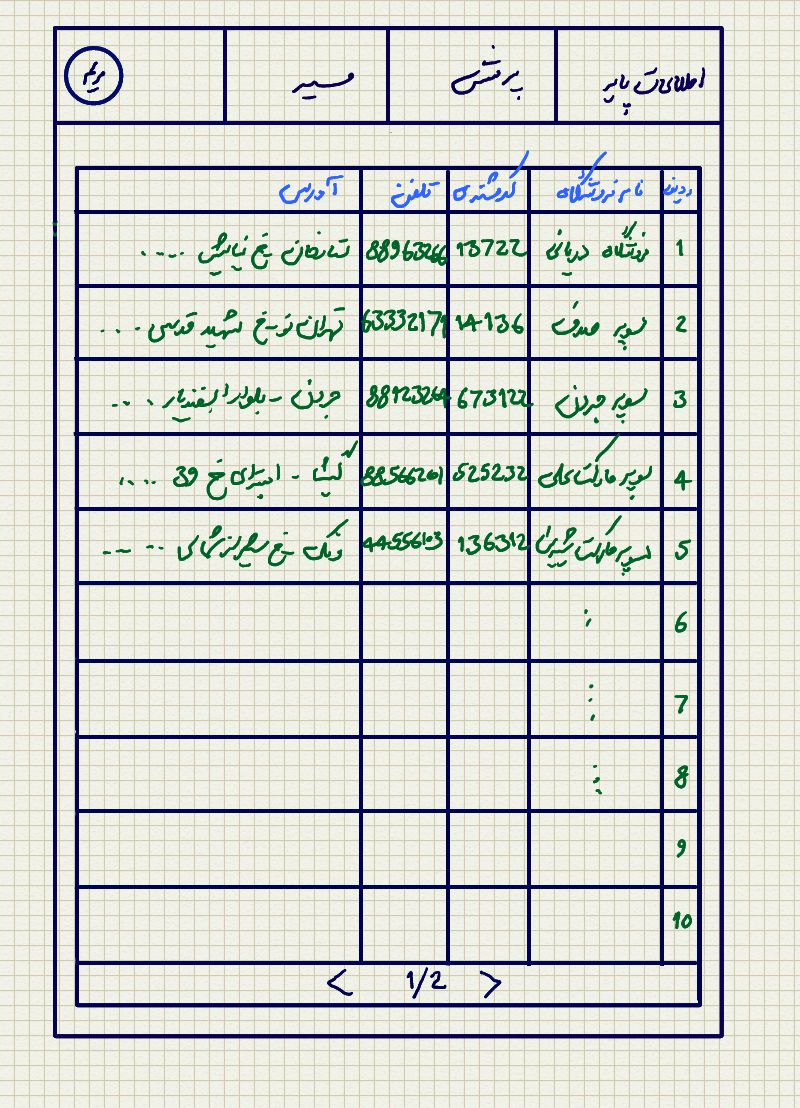 اطلاعات پایه پرفتس مسیر مریم
ردیف نام فروشگاه کد مشتری تلفن آدرس
1 فروشگاه دریانی 13722 88963266 خ نیایش ....
2 سوپر صدف 14136 تهران نو - خ شهید قدسی ...
3 سوپر جردن 673122 88123264 جردن - بلوار اسفندیار ....
4 سوپر مارکت علی 525232 88566261 گیشا - ابتدای خ 39 ....
5 سوپر مارکت شیرین 136312 44556103 ونک - خ شمالی ....
6 :
7 :
8 :
9
10
< 1/2 >